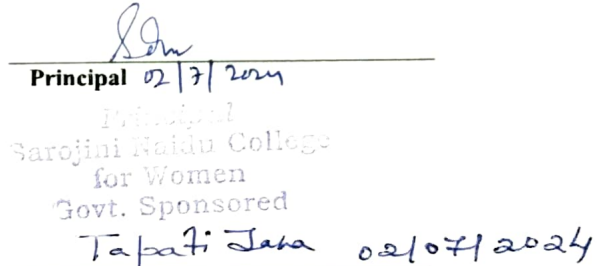 Principal 02/7/2024
Principal
Sarojini Naidu College
for Women
Govt. Sponsored
Tapati Jana 02/07/2024